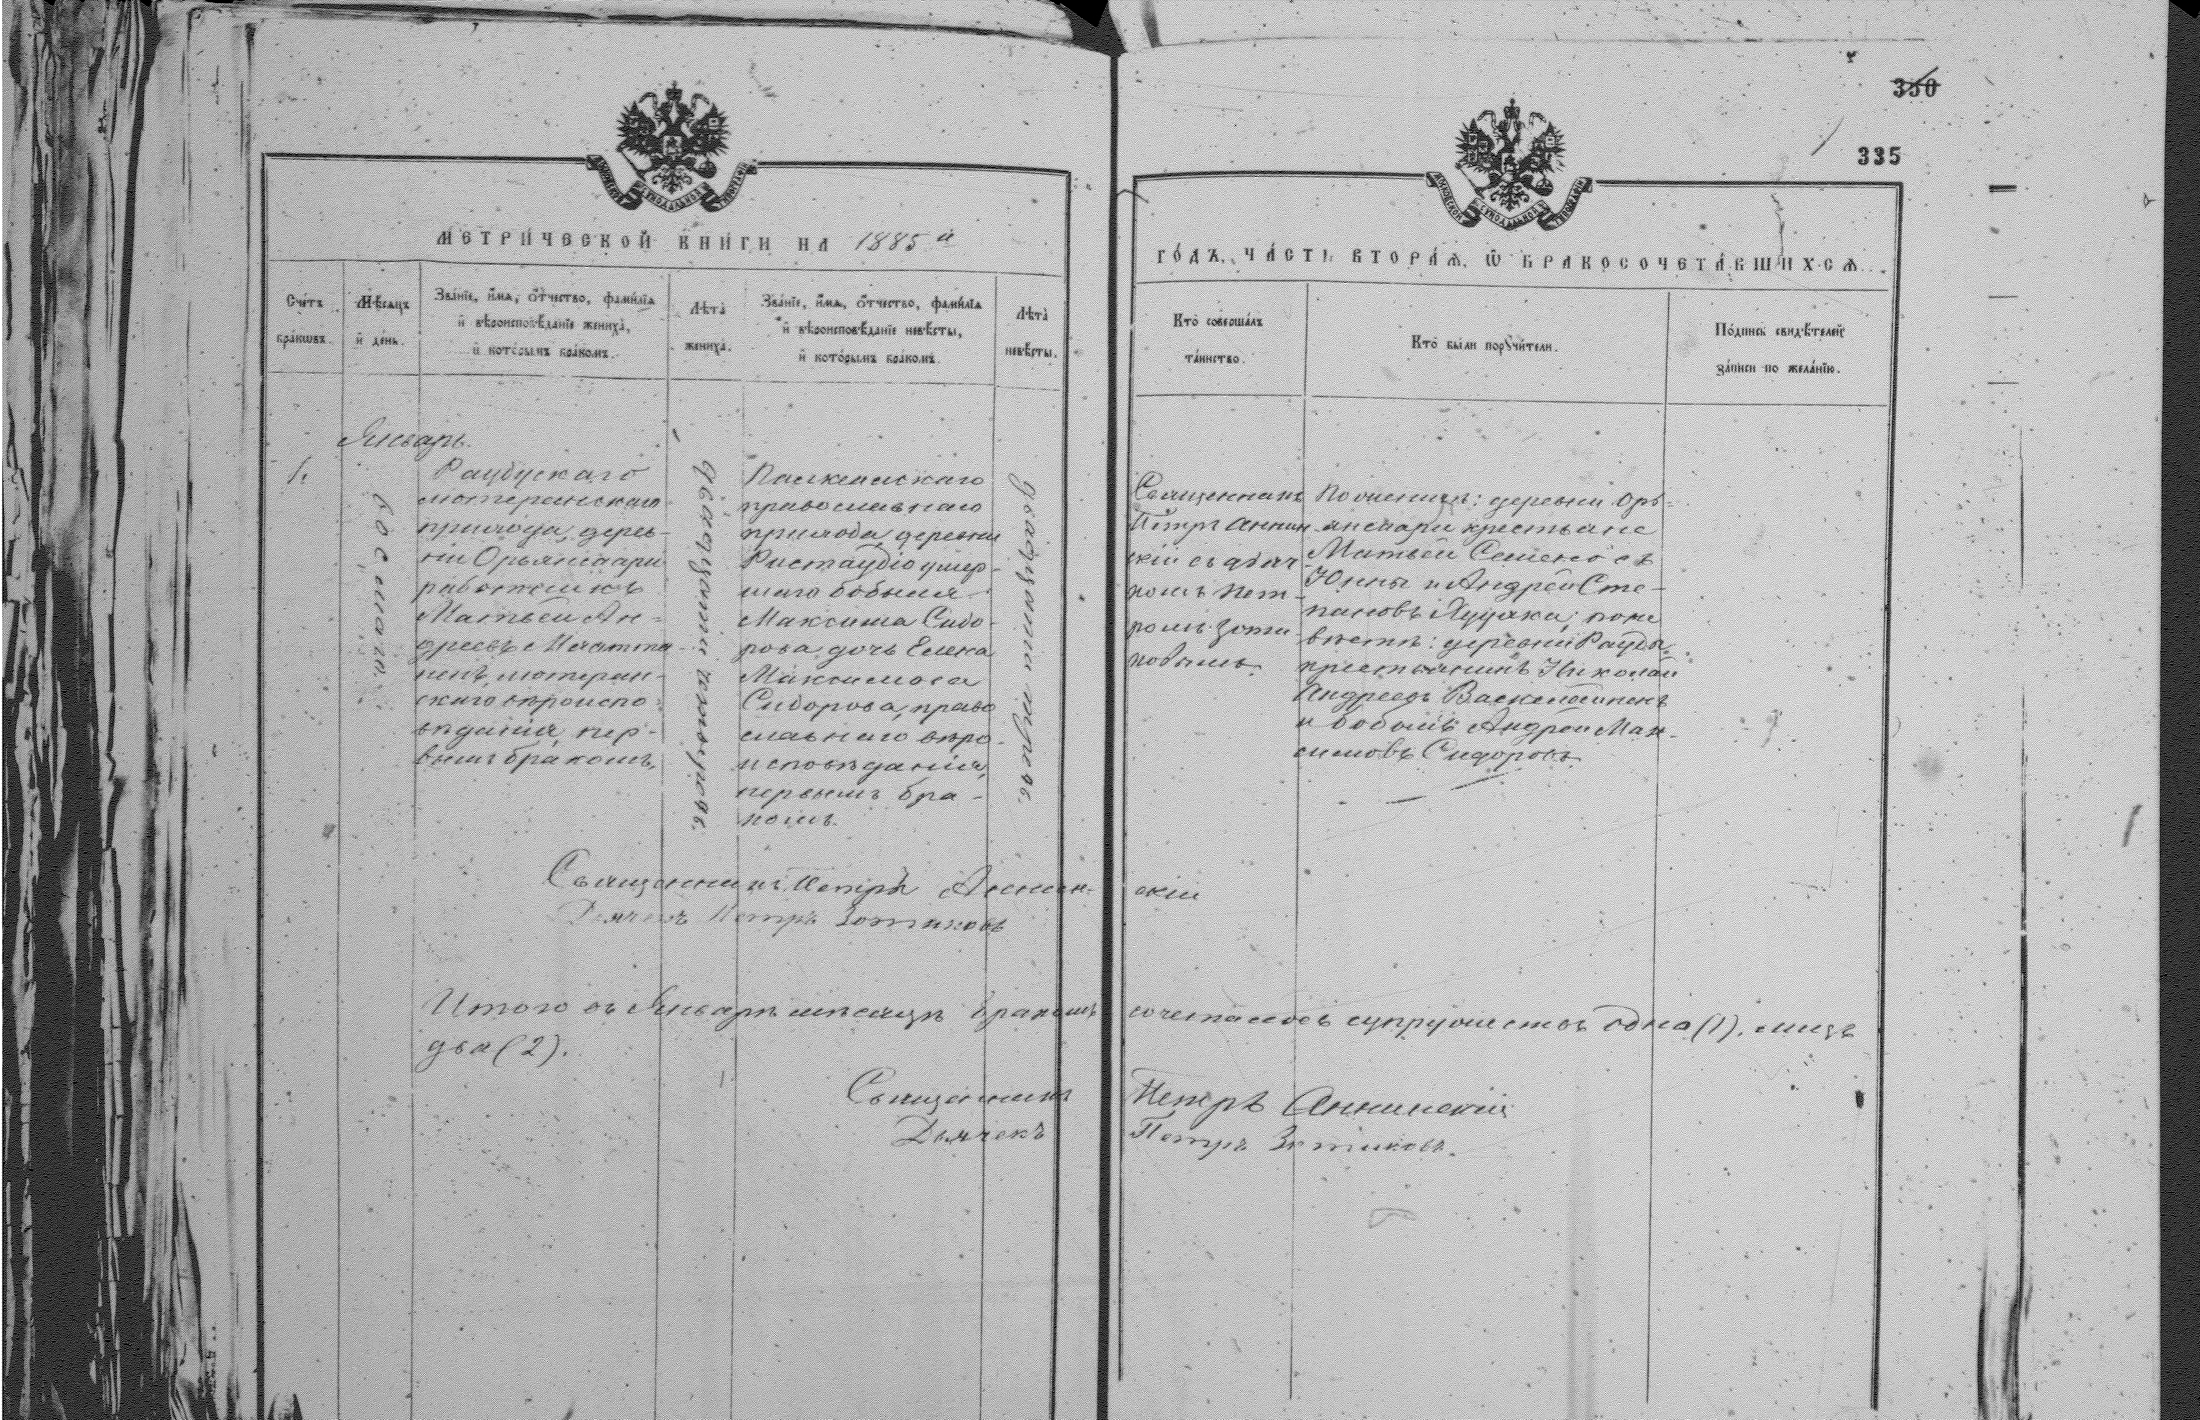 350
335
МЕТРИЧЕСКОЙ КНИГИ НА 1885 й
ГОДЪ, ЧАСТЬ ВТОРАѦ, Ѿ БРАКОСОЧЕТАВШИХСѦ
Счетъ браковъ.
Мѣсяцъ и день.
Званіе, имя, отчество, фамилія
и вѣроисповѣданіе жениха,
и которымъ бракомъ.
Лѣта жениха.
Званіе, имя, отчество, фамилія
и вѣроисповѣданіе невѣсты,
и которымъ бракомъ.
Лѣта невѣсты.
Кто совершалъ
таинство.
Кто были поручители.
Подпись свидѣтелей
записи по желанію.
Январь.
1.
восьмаго.
Раутускаго
лютеранскаго
прихода, дерев-
ни Орьянсаари
работникъ
Матвей Ан-
дреевъ
ненъ, лютеран-
скаго вѣроиспо-
вѣданія, пер-
вымъ бракомъ.
двадцати четырехъ.
православнаго
прихода, деревни
умер-
шаго бобыля
Максима Сидо-
рова дочь Елена
Максимова
Сидорова, право
славнаго вѣро-
исповѣданія,
первымъ бра-
комъ.
двадцати трехъ.
Священникъ
Петръ Аннин
скій съ дьяч-
комъ Пет-
ромъ Зоти-
ковымъ.
По женихѣ: деревни Орь-
янсаари крестьяне
Матвей Семеновъ
и Андрей Сте-
пановъ по не
вѣстѣ: деревни
крестьянинъ Николай
Андреевъ
и бобыль Андрей Мак-
симовъ Сидоровъ
Священникъ Петръ Аннин-скій
Дьячекъ Петръ Зотиковъ
Итого въ Январѣ мѣсяцѣ бракомъ сочеталось супружествъ одно (1), лицъ
два (2).
Священникъ Петръ Аннинскій
Дьячекъ Петръ Зотиковъ.